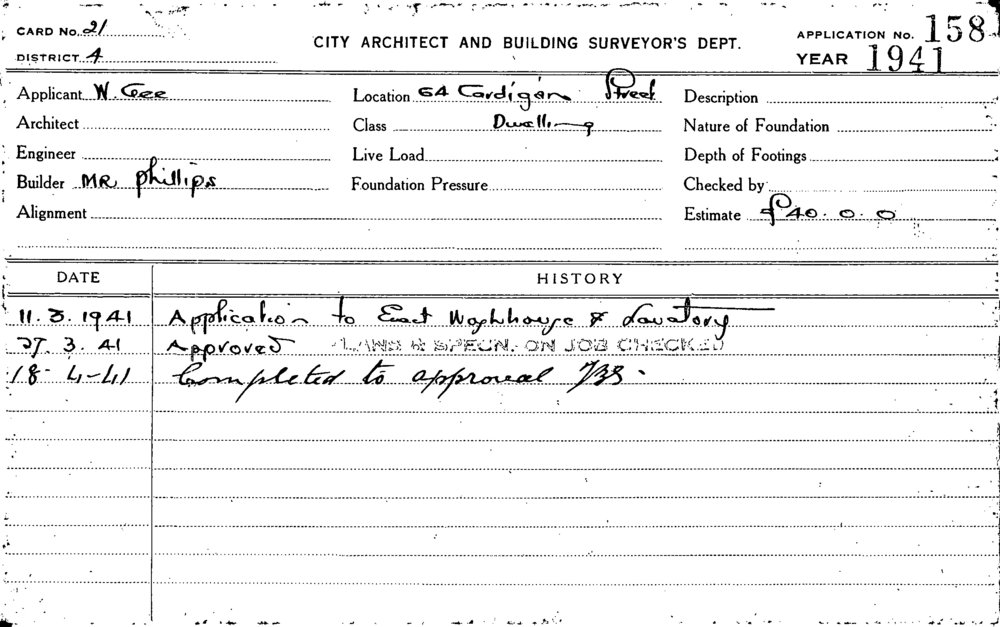 CARD No. 21
DISTRICT 4
CITY ARCHITECT AND BUILDING SURVEYOR'S DEPT.
APPLICATION No. 158
YEAR 1941
Applicant W. Gee
Location 64 Cardigan Street
Description
Architect
Class Dwelling
Nature of Foundation
Engineer
Live Load
Depth of Footings
Builder MR Phillips
Foundation Pressure
Checked by
Alignment
Estimate £40.0.0
DATE HISTORY
11.3.1941 Application to Erect Washhouse & Lavatory
27.3.41 Approved PLANS & SPECN. ON JOB CHECKED
18-4-41 Completed to approval